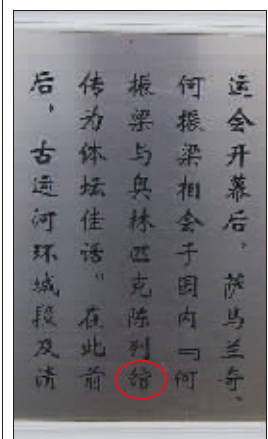 运会开幕后，萨马兰奇、
何振梁相会于园内『何
振梁与奥林匹克陈列
传为体坛佳话。在此前
后，古运河环城段及清